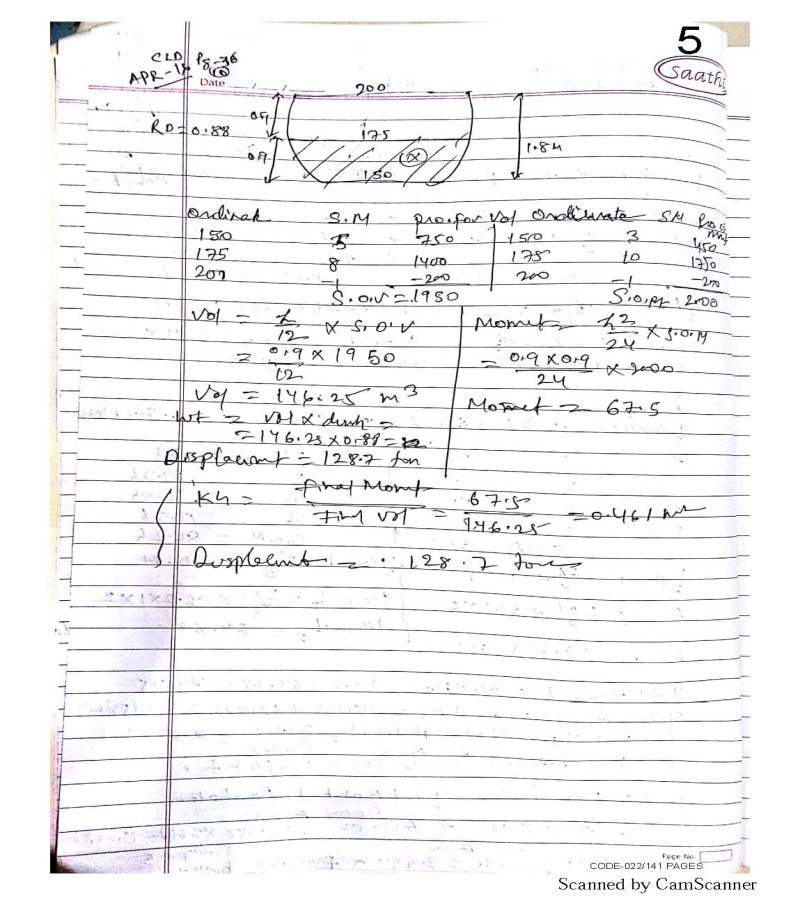 5
CLD Pg-36
APR-18
Saathi
Date
200
0.9
RD = 0.88
175
1.8M
0.9
150
Ordinate S.M pro.for Vol Ordinate SM
150 5 750 150 3 450
175 8 1400 175 10 1750
200 -1 -200 200 -1 -200
S.O.V = 1950 S.O.M: 2000
Vol = h/12 × S.O.V Moment = h2/24 × S.O.M
= 0.9 × 1950 / 12 = 0.9 × 0.9 / 24 × 2000
Vol = 146.25 m3 Moment = 67.5
wt = vol × dens =
= 146.25 × 0.88 =
Displacement = 128.7 ton
KG = final Moment / Final Vol = 67.5 / 146.25 = 0.461
Displacement = 128.7 tons
Page No.
CODE-022/141 PAGES
Scanned by CamScanner